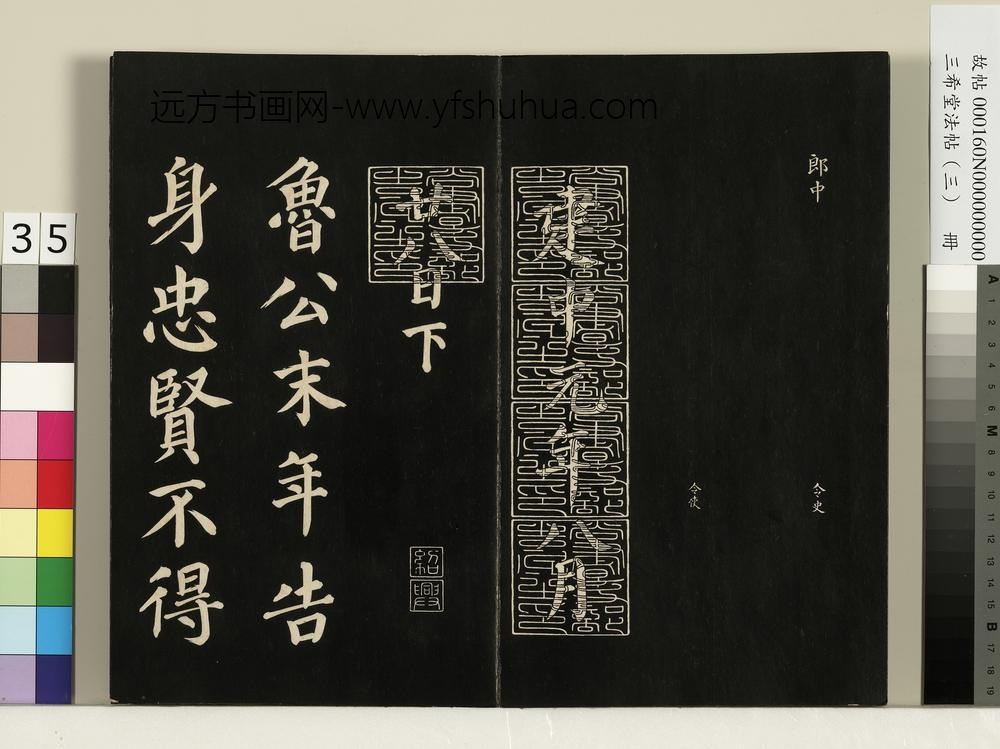 故帖 000160N000000000
三希堂法帖（三） 冊
远方书画网-www.yfshuhua.com
郎中
令史
令使
建中元年八月
廿八日下
紹興
魯公末年告
身忠賢不得
35
A 1 2 3 4 5 6 M 8 9 10 11 12 13 14 15 B 17 18 19